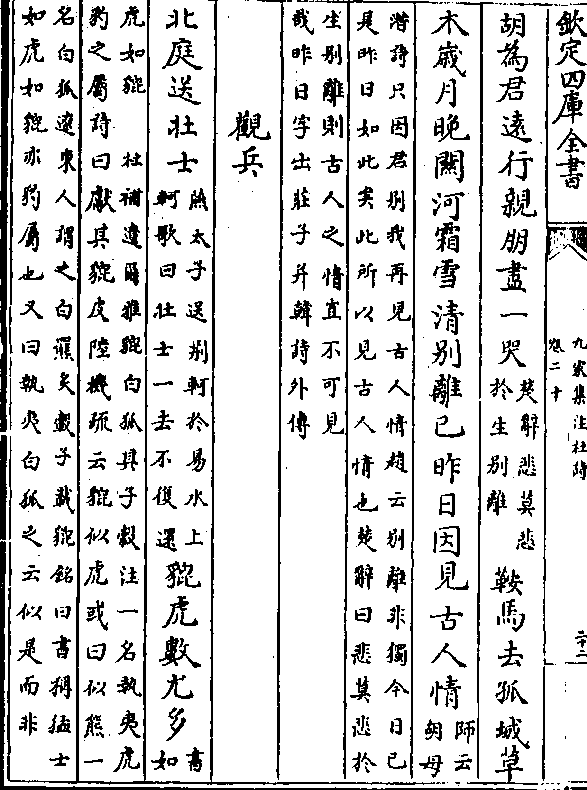 欽定四庫全書
九家集注杜詩
卷二十
胡為君遠行親朋盡一哭
楚辭悲莫悲
於生别離
鞍馬去孤城草
木歲月晚關河霜雪清别離已昨日因見古人情
師云
朔母
潛詩只因君别我再見古人情趙云别離非獨今日已
是昨日如此矣此所以見古人情也楚辭曰悲莫悲於
生别離則古人之情直不可見
哉昨日字出莊子并韓詩外傳
觀兵
北庭送壯士
燕太子送荆軻於易水上
軻歌曰壯士一去不復還
貔虎數尤多
書
如
虎如貔 杜補遺爾雅貔白狐其子豰注一名執夷虎
豹之屬詩曰獻其貔皮陸機疏云貔似虎或曰似熊一
名白狐遼東人謂之白羆矣豰子哉貔銘曰書稱猛士
如虎如貔亦豹屬也又曰執夷白狐之云似是而非